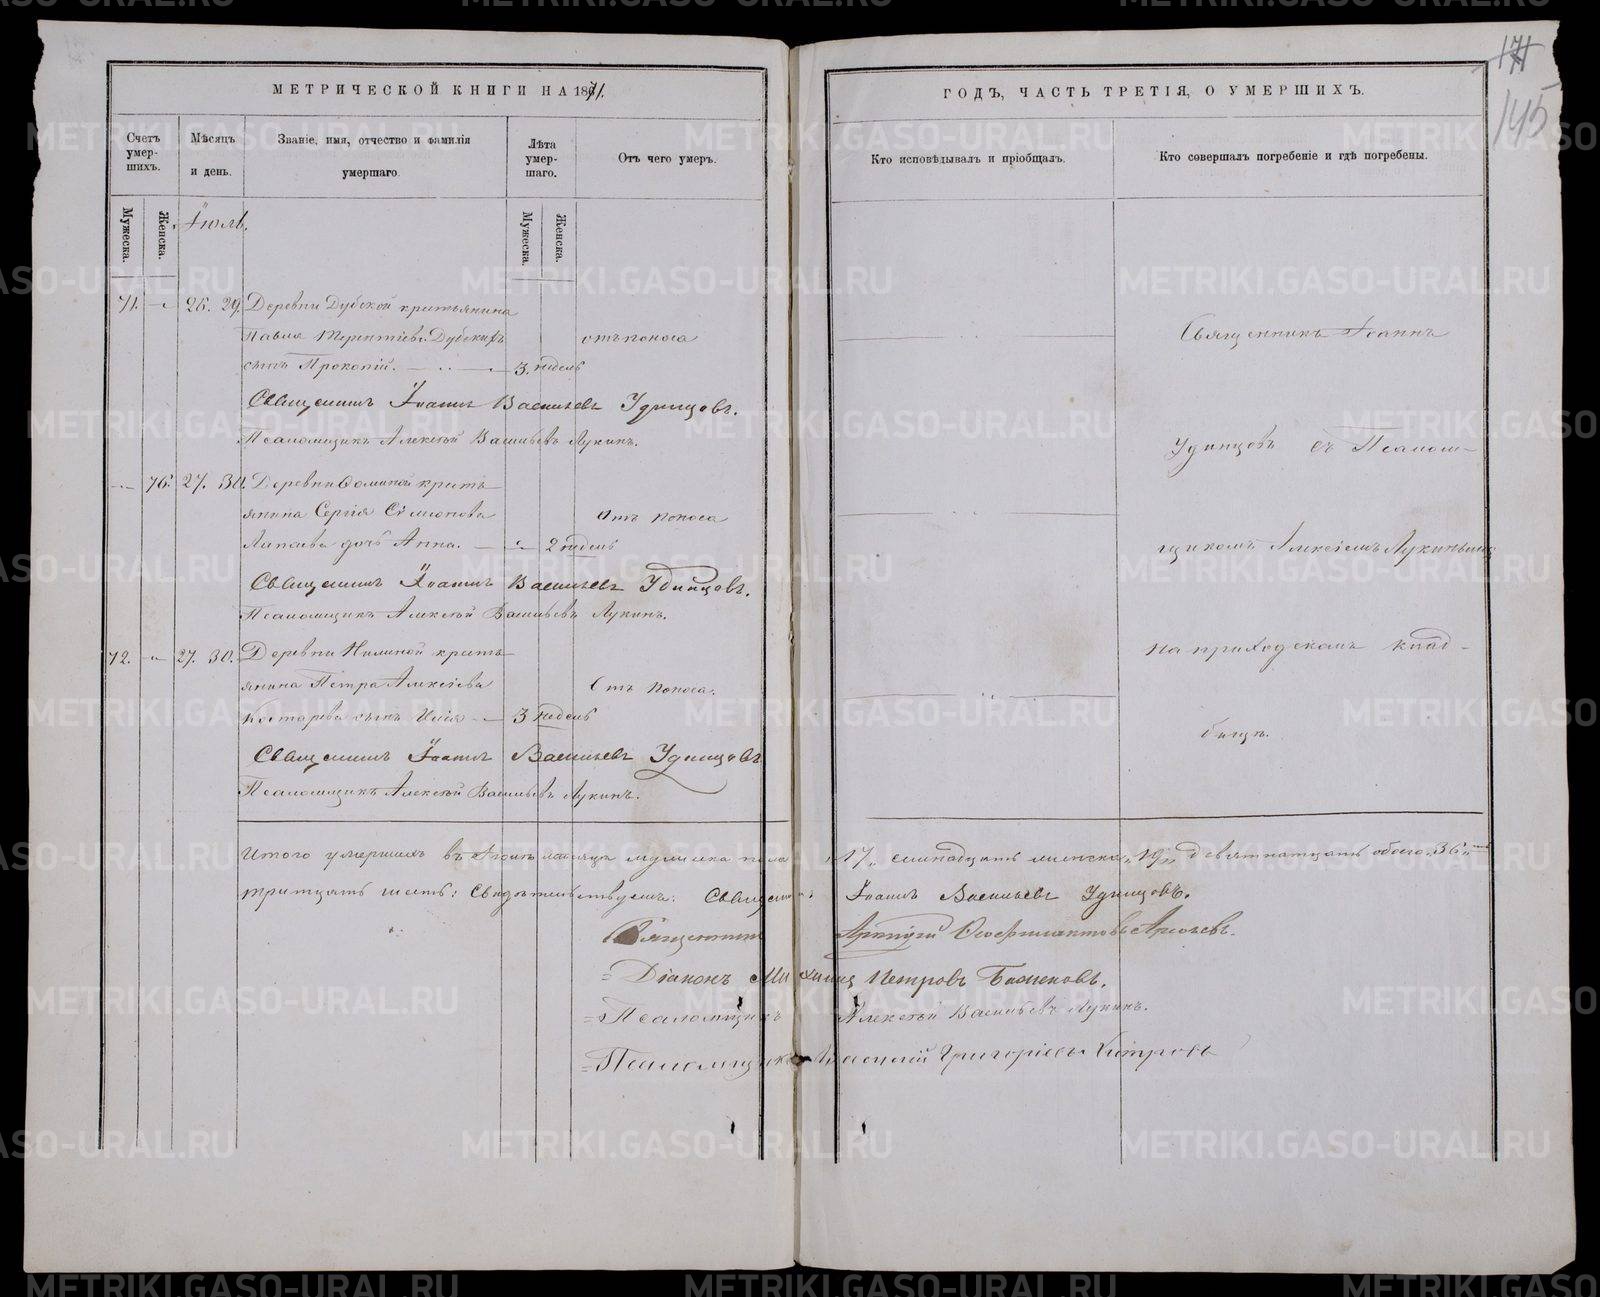 МЕТРИЧЕСКОЙ КНИГИ НА 1871.
Счетъ умер-шихъ.
Мужеска.
Женска.
Мѣсяцъ и день.
Званіе, имя, отчество и фамилія умершаго.
Лѣта умер-шаго.
Мужеска.
Женска.
Отъ чего умеръ.
Іюль.
71. 26. 29. Деревни Дубской крестьянина
Павла Терентіева Дубскихъ отъ поноса
сынъ Прокопій. 3. недель
Священникъ Іоаннъ Васильевъ Удинцовъ.
Псаломщикъ Алексѣй Васильевъ Лукинъ.
76. 27. 30. Деревни Фоминой кресть
янина Сергія Симіонова Отъ поноса
Лапаева дочь Анна. 2 недель
Священникъ Іоаннъ Васильевъ Удинцовъ.
Псаломщикъ Алексѣй Васильевъ Лукинъ.
72. 27. 30. Деревни Ниминой кресть
янина Петра Алексіева Отъ поноса.
Костарева сынъ Илія 3 недель
Священникъ Іоаннъ Васильевъ Удинцовъ
Псаломщикъ Алексѣй Васильевъ Лукинъ.
ГОДЪ, ЧАСТЬ ТРЕТІЯ, О УМЕРШИХЪ.
171
145
Кто исповѣдывалъ и пріобщалъ.
Кто совершалъ погребеніе и гдѣ погребены.
Священникъ Іоаннъ
Удинцовъ съ Псалом-
щикомъ Алексіемъ Лукинымъ
на приходскомъ клад-
бищѣ.
Итого умершихъ въ Іюлѣ мѣсяцѣ мужеска пола 17, семнадцать женска 19, девятнатцать обоего 36
тритцать шесть: Свидѣтельствуемъ: Священникъ Іоаннъ Васильевъ Удинцовъ.
Священникъ Аркадій Феофилактовъ
Діаконъ Михаилъ Петровъ Баженовъ.
Псаломщикъ Алексѣй Васильевъ Лукинъ.
Псаломщикъ Григоріевъ
METRIKI.GASO-URAL.RU